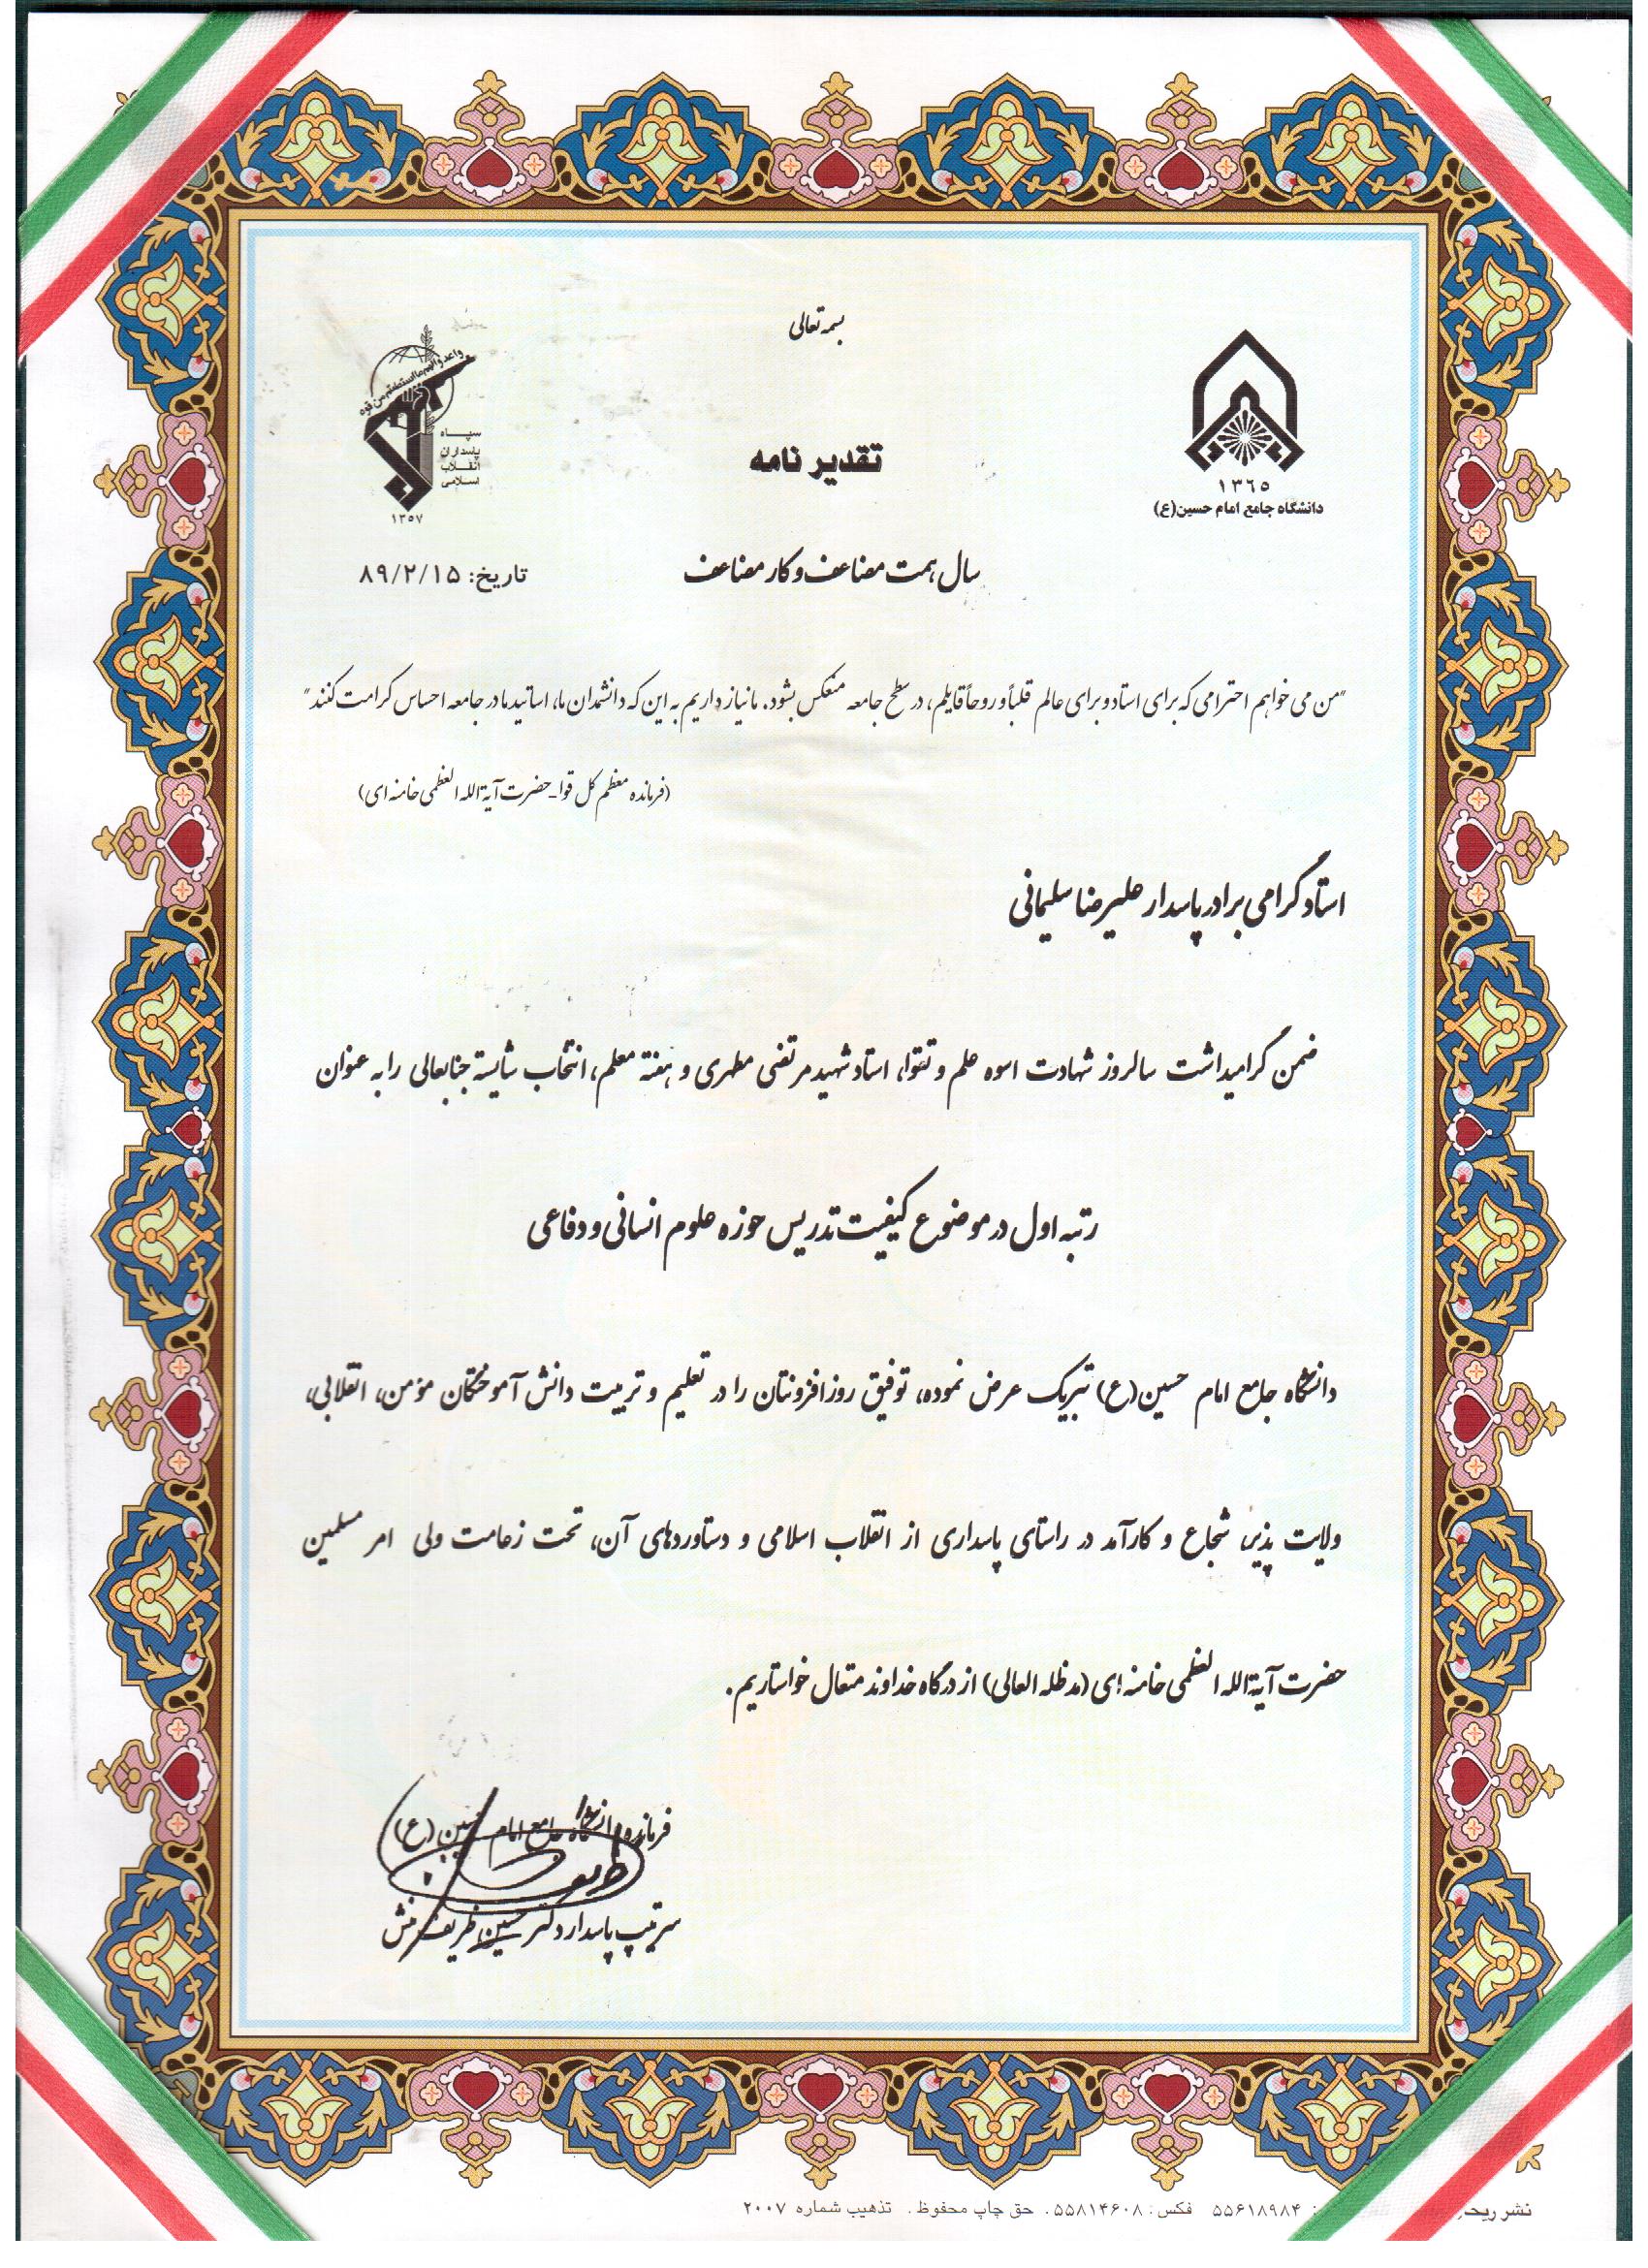 بسمه تعالی
واعدوا لهم ما استطعتم من قوه
سپاه
پاسداران
انقلاب
اسلامی
۱۳۵۷
تقدیر نامه
۱۳۶۵
دانشگاه جامع امام حسین(ع)
سال همت مضاعف و کار مضاعف
تاریخ: ۸۹/۲/۱۵
"من می خواهم احترامی که برای استاد و برای عالم قلباً و روحاً قایلم، در سطح جامعه منعکس بشود. ما نیاز داریم به این که دانشمندان ما، اساتید ما در جامعه احساس کرامت کنند"
(فرمانده معظم کل قوا-حضرت آیةالله العظمی خامنه ای)
استاد گرامی برادر پاسدار علیرضا سلیمانی
ضمن گرامیداشت سالروز شهادت اسوه علم و تقوا، استاد شهید مرتضی مطهری و هفته معلم، انتخاب شایسته جنابعالی را به عنوان
رتبه اول در موضوع کیفیت تدریس حوزه علوم انسانی و دفاعی
دانشگاه جامع امام حسین(ع) تبریک عرض نموده، توفیق روزافزونتان را در تعلیم و تربیت دانش آموختگان مؤمن، انقلابی،
ولایت پذیر، شجاع و کارآمد در راستای پاسداری از انقلاب اسلامی و دستاوردهای آن، تحت زعامت ولی امر مسلمین
حضرت آیةالله العظمی خامنه ای (مدظله العالی) از درگاه خداوند متعال خواستاریم.
فرمانده دانشگاه جامع امام حسین (ع)
سرتیپ پاسدار دکتر حسین ظریف منش
نشر ریحـ ۵۵۶۱۸۹۸۴ فکس: ۵۵۸۱۴۶۰۸. حق چاپ محفوظ. تذهیب شماره ۲۰۰۷